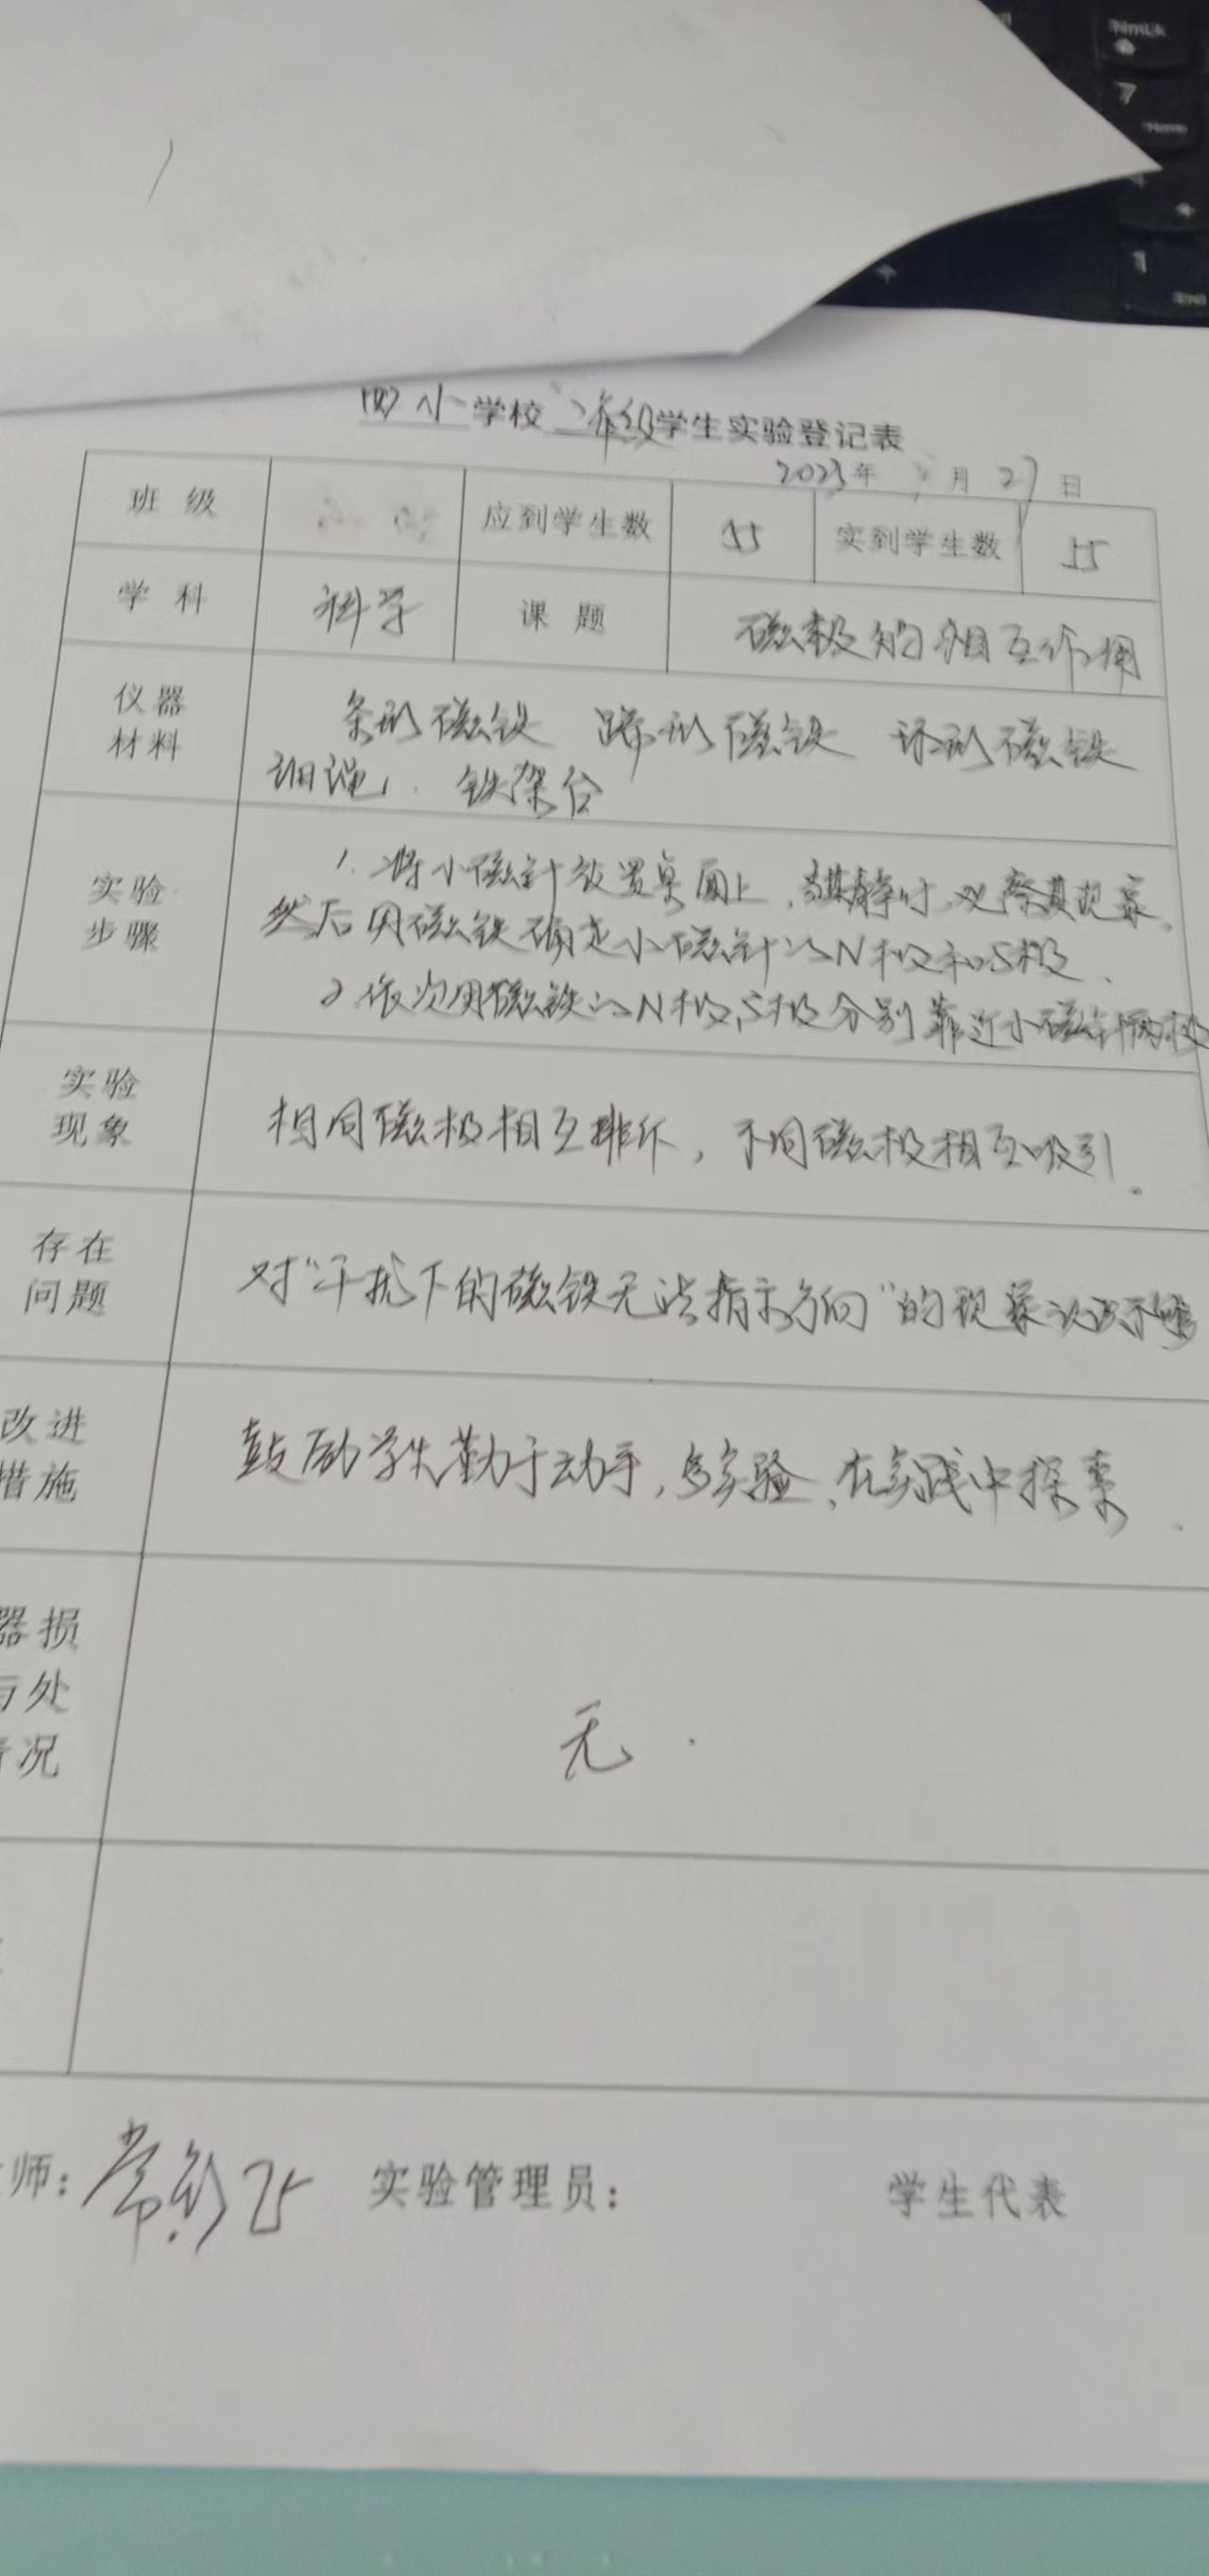 四小学校二年级学生实验登记表
2023年 月27日
班级 应到学生数 55 实到学生数 55
学科 科学 课题 磁极的相互作用
仪器材料 条形磁铁 蹄形磁铁 环形磁铁
细绳、铁架台
实验步骤 1.将小磁针放置桌面上,待其静时,观察其现象。
然后用磁铁确定小磁针的N极和S极.
2 依次用磁铁的N极,S极分别靠近小磁针两极
实验现象 相同磁极相互排斥,不同磁极相互吸引。
存在问题 对“干扰下的磁铁无法指示方向”的现象认识不够
改进措施 鼓励学生勤于动手,多实验,在实践中探索.
器损
与处
情况
无.
师: 常 实验管理员: 学生代表
NmLk
7
Home
1
End